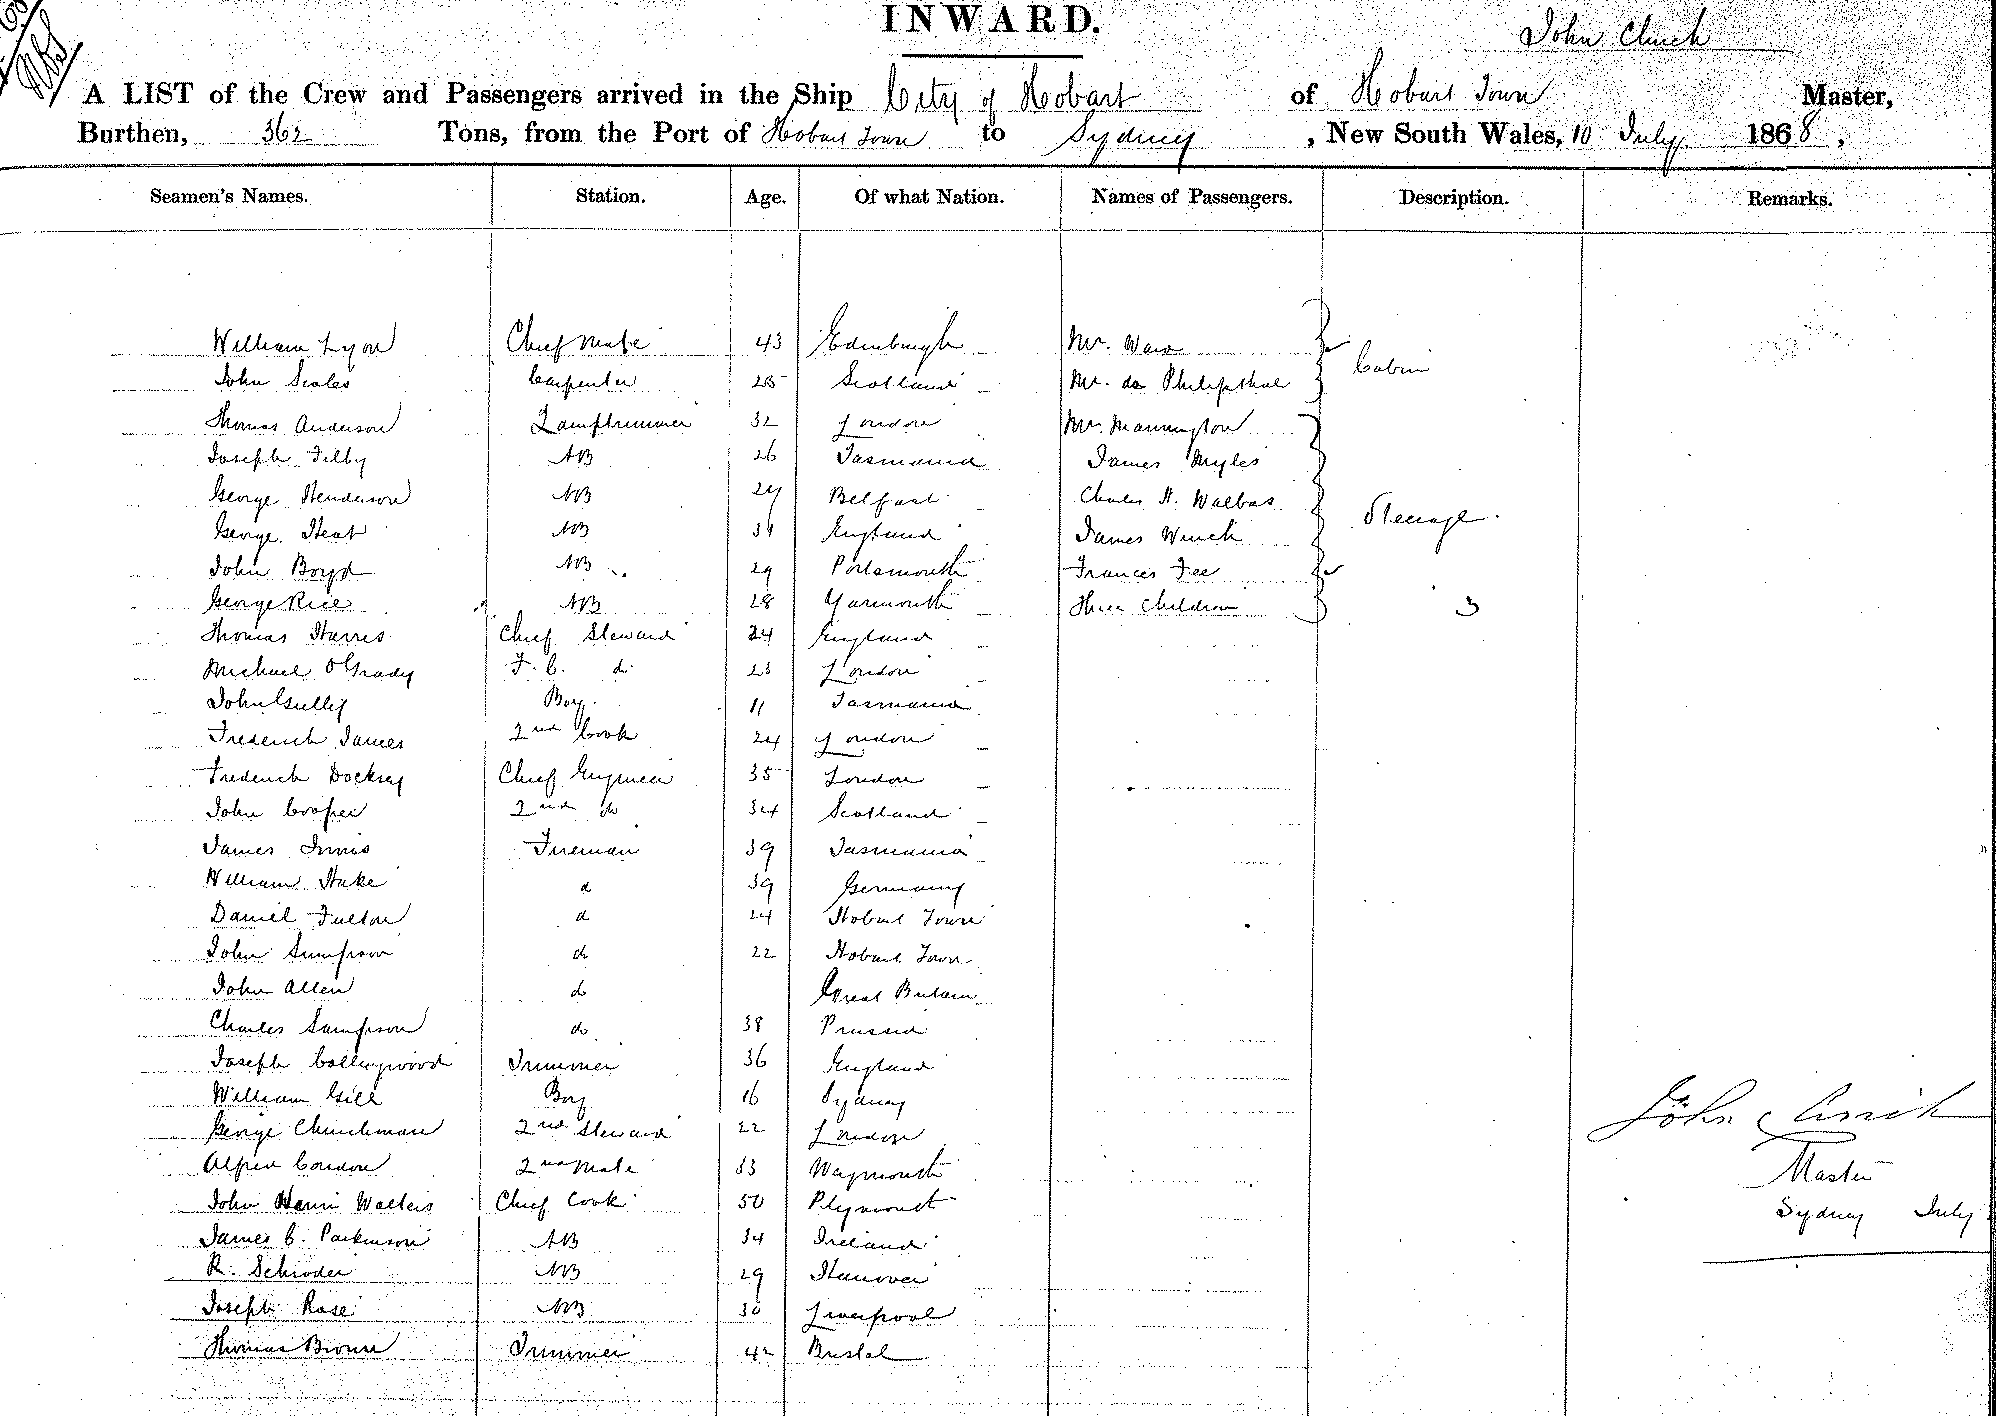 INWARD.
John Clinch
A LIST of the Crew and Passengers arrived in the Ship City of Hobart of Hobart Town Master,
Burthen, 362 Tons, from the Port of Hobart Town to Sydney, New South Wales, 10 July 1868,
Seamen's Names. Station. Age. Of what Nation. Names of Passengers. Description. Remarks.
William Lyon Chief Mate 43 Edinburgh Mr. Cabin
John Scales Carpenter Scotland Mr. de Philipsthal
Thomas Anderson Lamptrimmer 32 London Mr. Mannington
Joseph Tilby AB 26 Tasmania James Myles
George Henderson AB 24 Belfast Charles H. Steerage
George Heat AB England James Winch
John Boyd AB 29 Portsmouth Frances Fee
George Rice AB 28 Yarmouth Three Children 3
Thomas Harris Chief Steward 24 England
Michael O'Grady F. C. do 23 London
John Gully Boy 11 Tasmania
Frederick James 2nd Cook 24 London
Frederick Docksey Chief Engineer 35 London
John Cooper 2nd do 34 Scotland
James Innis Fireman 39 Tasmania
William Hake d 39 Germany
Daniel Fulton d 24 Hobart Town
John Simpson do 22 Hobart Town
John Allen do Great Britain
Charles Sampson do 38 Prussia
Joseph Collingwood Trimmer 36 England
William Gill Boy 16 Sydney
George Churchman 2nd Steward 22 London
Alfred Condon 2nd Mate 33 Weymouth
John Walters Chief Cook 50 Plymouth
James C. Parkinson AB 34 Ireland
R. Schroder AB 29 Hanover
Joseph Rose AB 30 Liverpool
Thomas Brown Trimmer 42 Bristol
John Clinch
Master
Sydney July